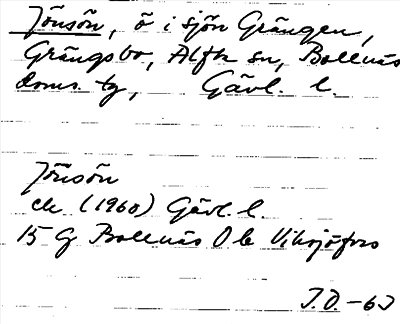 Jönsön, ö i sjön Grängen,
Grängsbo, Alfta sn, Bollnäs
doms. tg, Gävl. l.
Jönsön
ek (1960) Gävl. l.
15 G Bollnäs O b Viksjöfors
J.O. -63